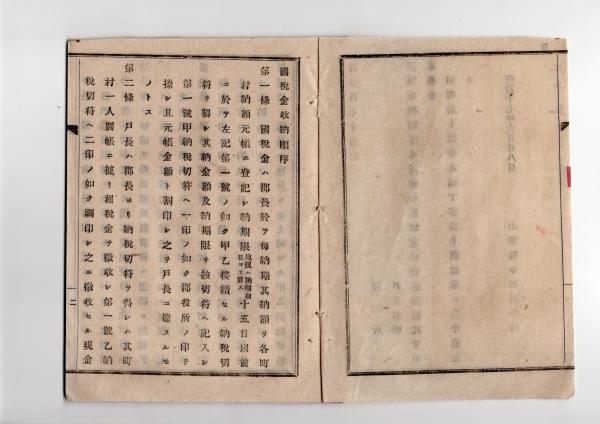 國稅金收納順序
第一條 國稅金ハ郡長於テ每納期其納額ヲ各町
村納額元帳ニ登記シ納期限地租ハ納期初日ヨリ算ス十五日以前
ニ於テ左記第一號ノ如ク甲乙接續セル納稅切
符ヲ製シ其納金額及納期限ヲ該切符ヘ記入シ
第一號甲納稅切符ヘ一印ノ如ク郡役所ノ印ヲ
捺シ且元帳金額ト割印シ之ヲ戶長ニ達スルモ
ノトス
第二條 戶長ハ郡長ヨリ納稅切符ヲ得レハ其町
村一人別帳ニ據リ租稅金ヲ徵收シ第一號乙納
稅切符ヘ二印ノ如ク調印シ之ニ徵收セル現金
二